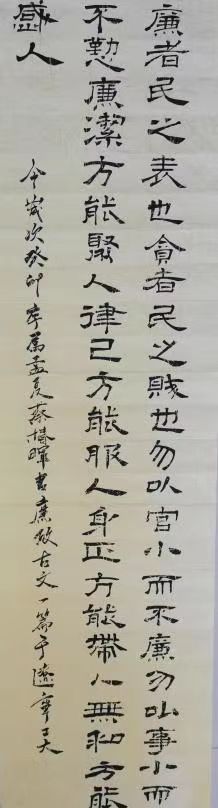 廉者民之表也貪者民之賊也勿以官小而不廉勿以事小而
不勤廉潔方能聚人律己方能服人身正方能帶人無私方能
感人
今歲次癸卯季屬孟夏蔡椿暉書廉政古文一篇于遼寧工大